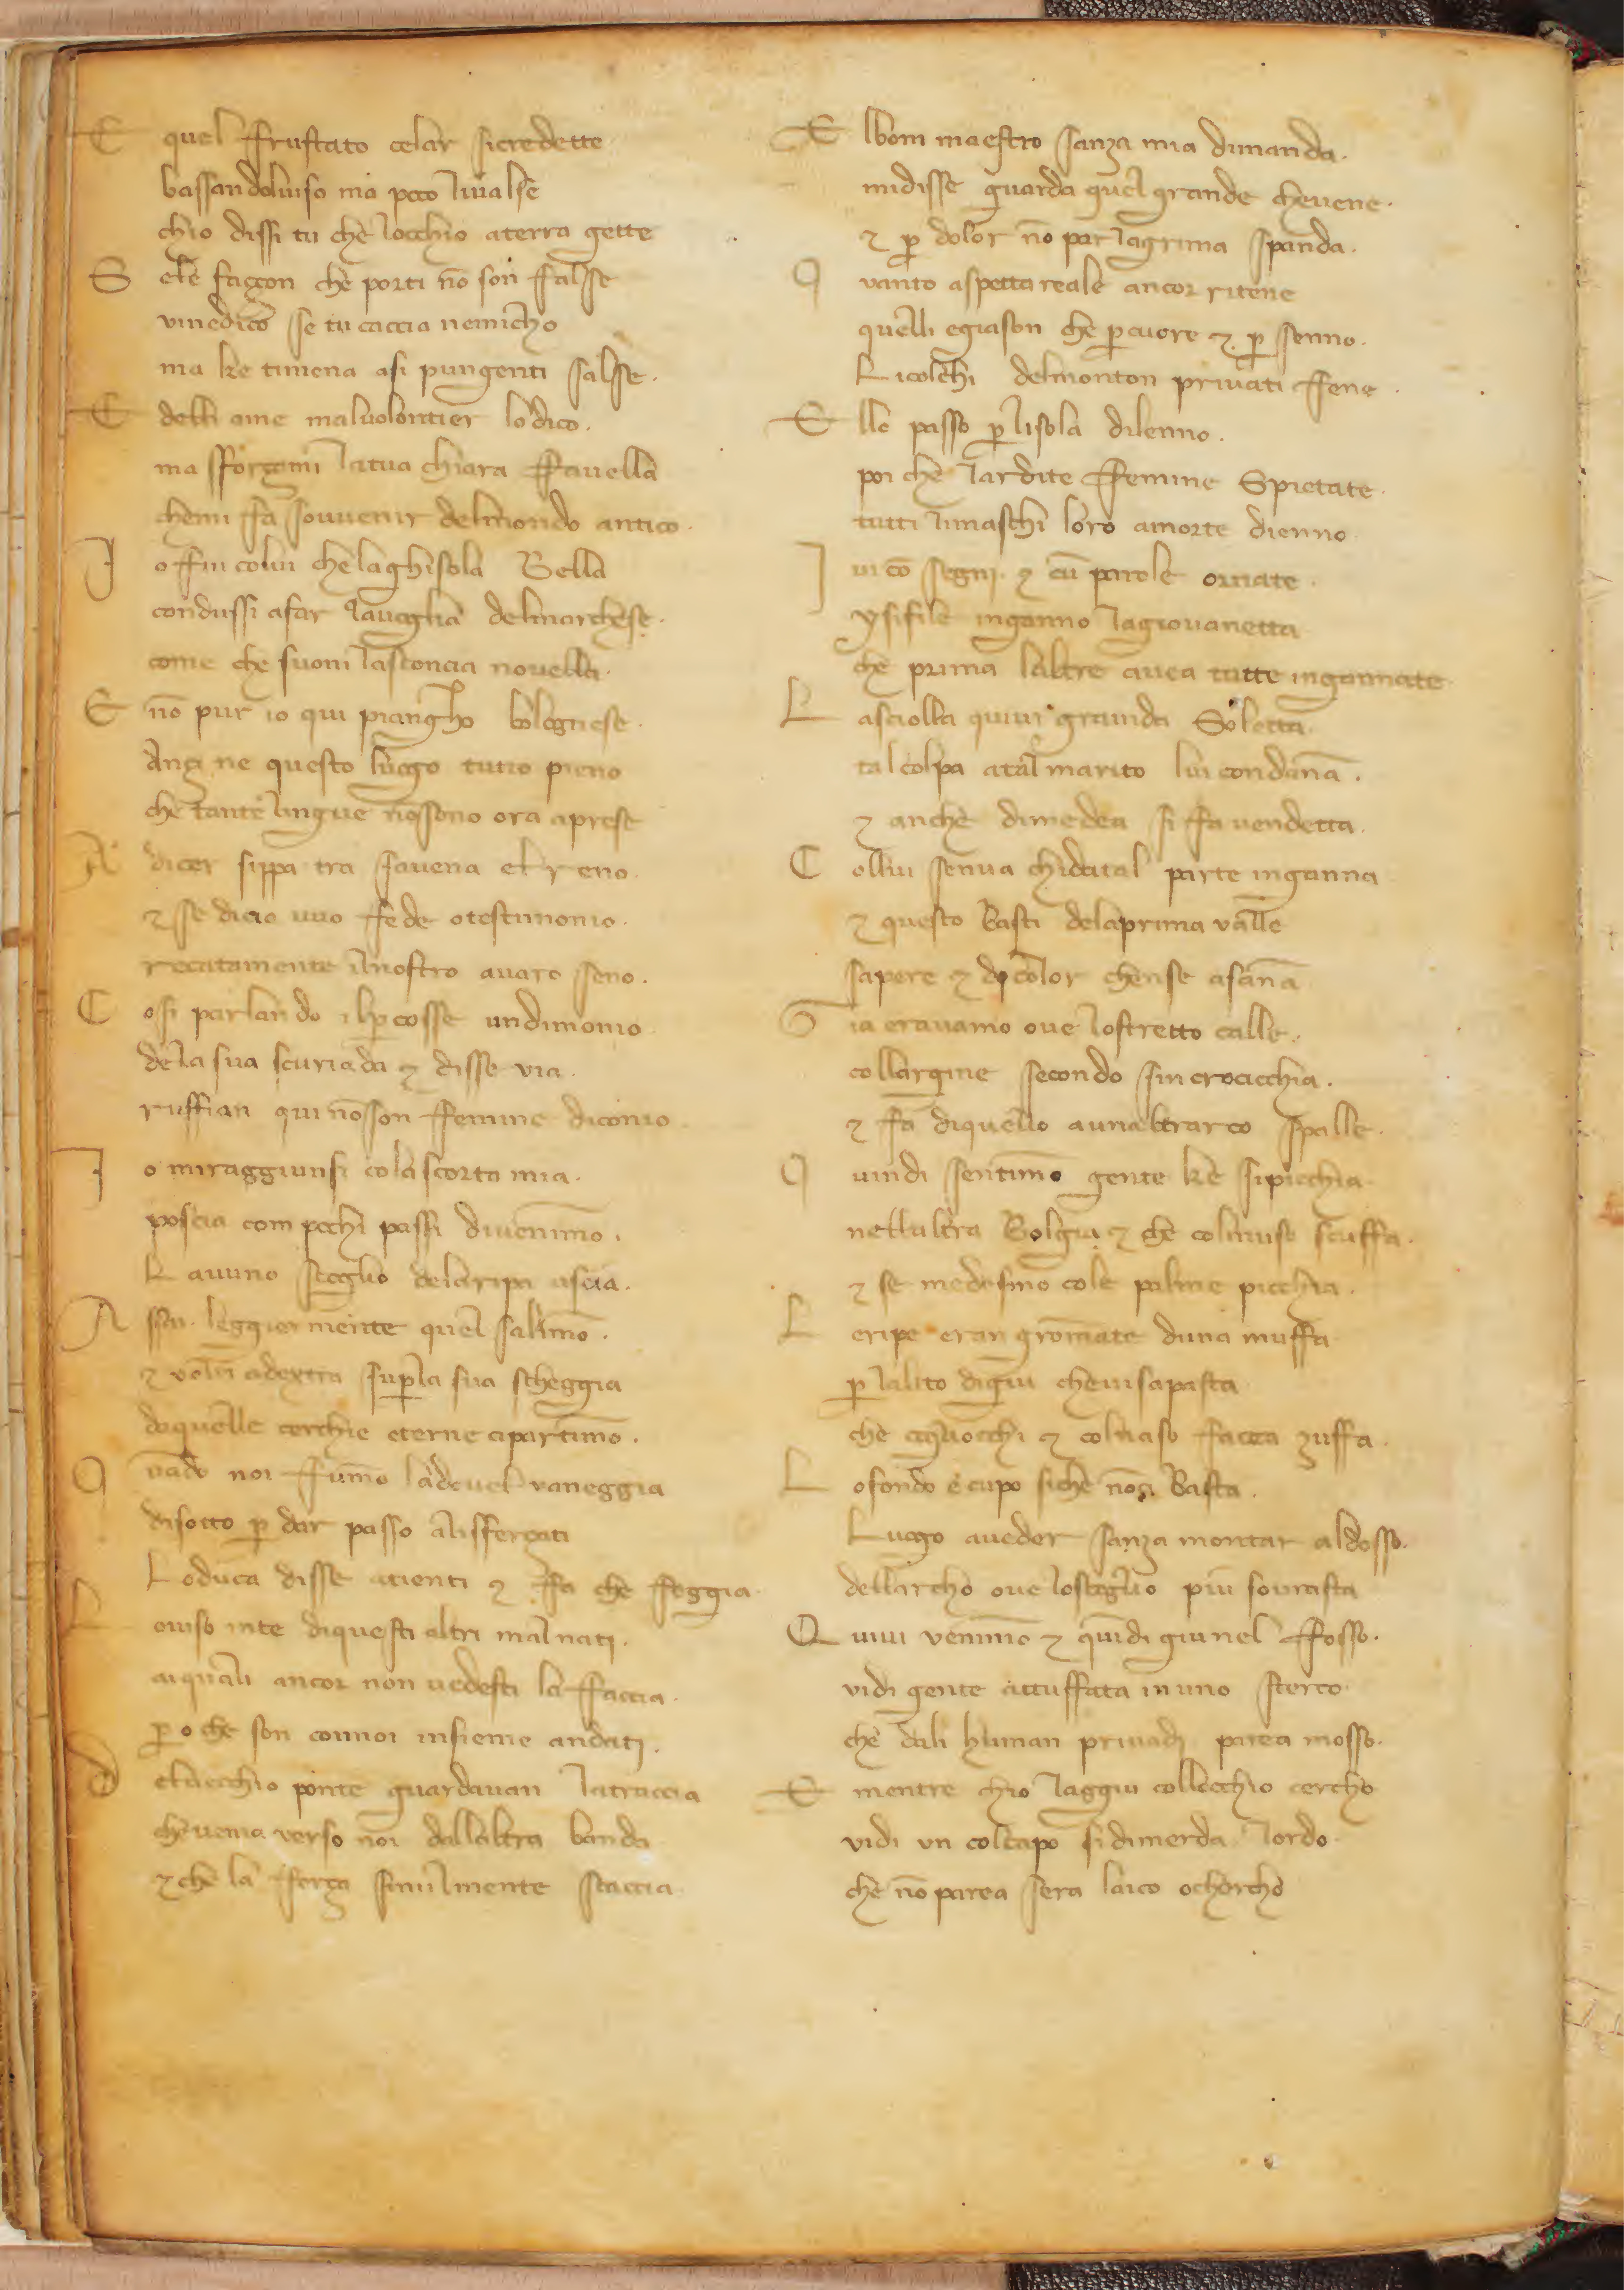 E quel ffrustato celar sicredette
bassandoluiso ma poco liualse
chio dissi tu che locchio aterra gette
S ele façcon che porti nō son ffalsse
vinedico sse tu caccia nemicho
ma ke timena asi pungenti ssalsse.
E delli ame maluolontier lodico.
ma sforçami latua chiara ffauella
chemi ffa ssouuenir delmondo antico.
I o ffui colui chelaghisola Bella
condussi afar lauoglia delmarchese.
come che suoni lasconcia nouella.
E nō pur io qui piangho bolognese.
Ançi ne questo luogo tutto pieno
che tante lingue nōssono ora aprese
A dicer sippa tra ssauena el reno.
⁊ sse dicio uuo ffede otestimonio.
recatamente ilnostro auaro sseno.
C osi parlando ilp̄cosse undimonio
dela sua scuriada ⁊ disse via.
ruffian qui nōsson ffemine diconio
I o miraggiunsi cola scorta mia.
poscia com pochi passi diuenimmo.
L auuno scoglio delaripa uscia.
A ssai leggiermente quel salimō.
⁊ volti adextra supla sua scheggia
daquelle cerchie eterne apartimō.
Q uado noi ffumō ladouel vaneggia
disotto p̄ dar passo alisfferçati
Loduca disse atienti ⁊ ffa che ffeggia.
L ouiso inte diquesti altri malnati.
aiquali ancor non uedesti la ffaccia.
p̄o che son connoi insieme andati.
D eluecchio ponte guardauan latraccia
cheuenia verso noi dallaltra banda
⁊ che la fferça similmente scaccia
E lbom maestro ssanza mia dimanda.
midisse guarda quel grande cheuene.
⁊ p̄ dolor nō par lagrima spanda.
Q vanto aspetto reale ancor ritene
quelli egiason che p̄ cuore ⁊ p̄ ssenno.
Licolchi delmonton priuati ffene.
E llo passo p̄ lisola dilenno.
poi che lardite ffemine Spietate.
tutti limaschi loro amorte dienno
I ui cō ssegni ⁊ cū parole ornate.
ysifile inganno lagiouanetta
che prima laltre auea tutte ingannate.
L asciolla quiui grauida Soletta.
tal colpa atal marito lui condāna.
⁊ anche dimedea si ffa uendetta.
C ollui senua chidatal parte inganna
⁊ questo Basti delaprima valle
sapere ⁊ di color chense asāna
G ia erauamo oue lostretto calle.
collargine ssecondo ssincrocicchia.
⁊ ffa diquello aunaltrarco spalle.
Q uindi ssentimō gente ke sipicchia
nellaltra Bolgia ⁊ che colmuso scuffa.
⁊ se medesmo cole palme picchia.
L eripe eran gromate duna muffa
p̄ lalito digiu cheuisapasta
che cogliocchi ⁊ colnaso ffacea zuffa.
L ofondo e cupo siche nōci Basta.
Luogo aueder ssanza montar aldosso.
dellarcho oue loscoglio piu sourasta
Q uiui venimō ⁊ quidi giu nel ffosso.
vidi gente attuffata in uno sterco.
che dali human priuadi parea mosso.
E mentre chio laggiu collocchio cercho
vidi vn colcapo sidimerda lordo.
che nō parea sera laico ocherche